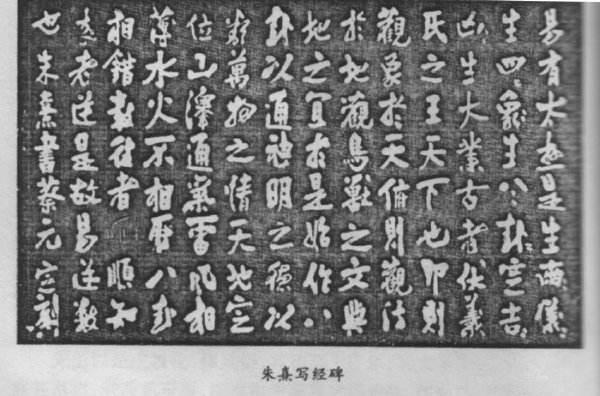 易有太極是生兩儀
生四象生八卦定吉
凶生大業古者伏羲
氏之王天下也仰則
觀象於天俯則觀法
於地觀鳥獸之文與
地之宜於是始作八
卦以通神明之德以
類萬物之情天地定
位山澤通氣雷風相
薄水火不相射八卦
相錯數往者順知
來者逆是故易逆數
也朱熹書蔡元定刻
朱熹写经碑